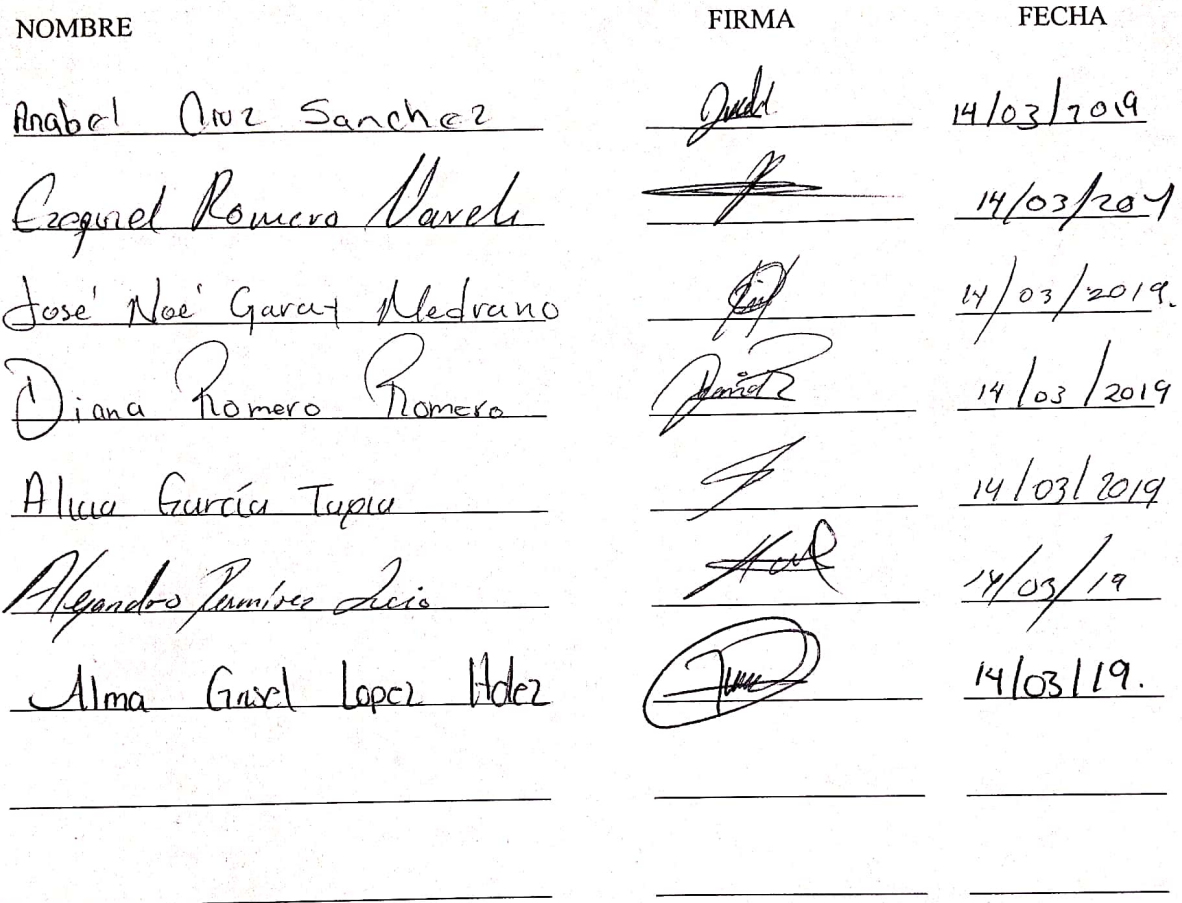 NOMBRE FIRMA FECHA
Anabel Cruz Sanchez 14/03/2019
Ezequiel Romero 14/03/201
José Noé Garay Medrano 14/03/2019.
Diana Romero Romero 14/03/2019
Alicia García Tapia 14/03/2019
Alejandro Ramírez Lucio 14/03/19
Alma Grisel Lopez Hdez 14/03/19.